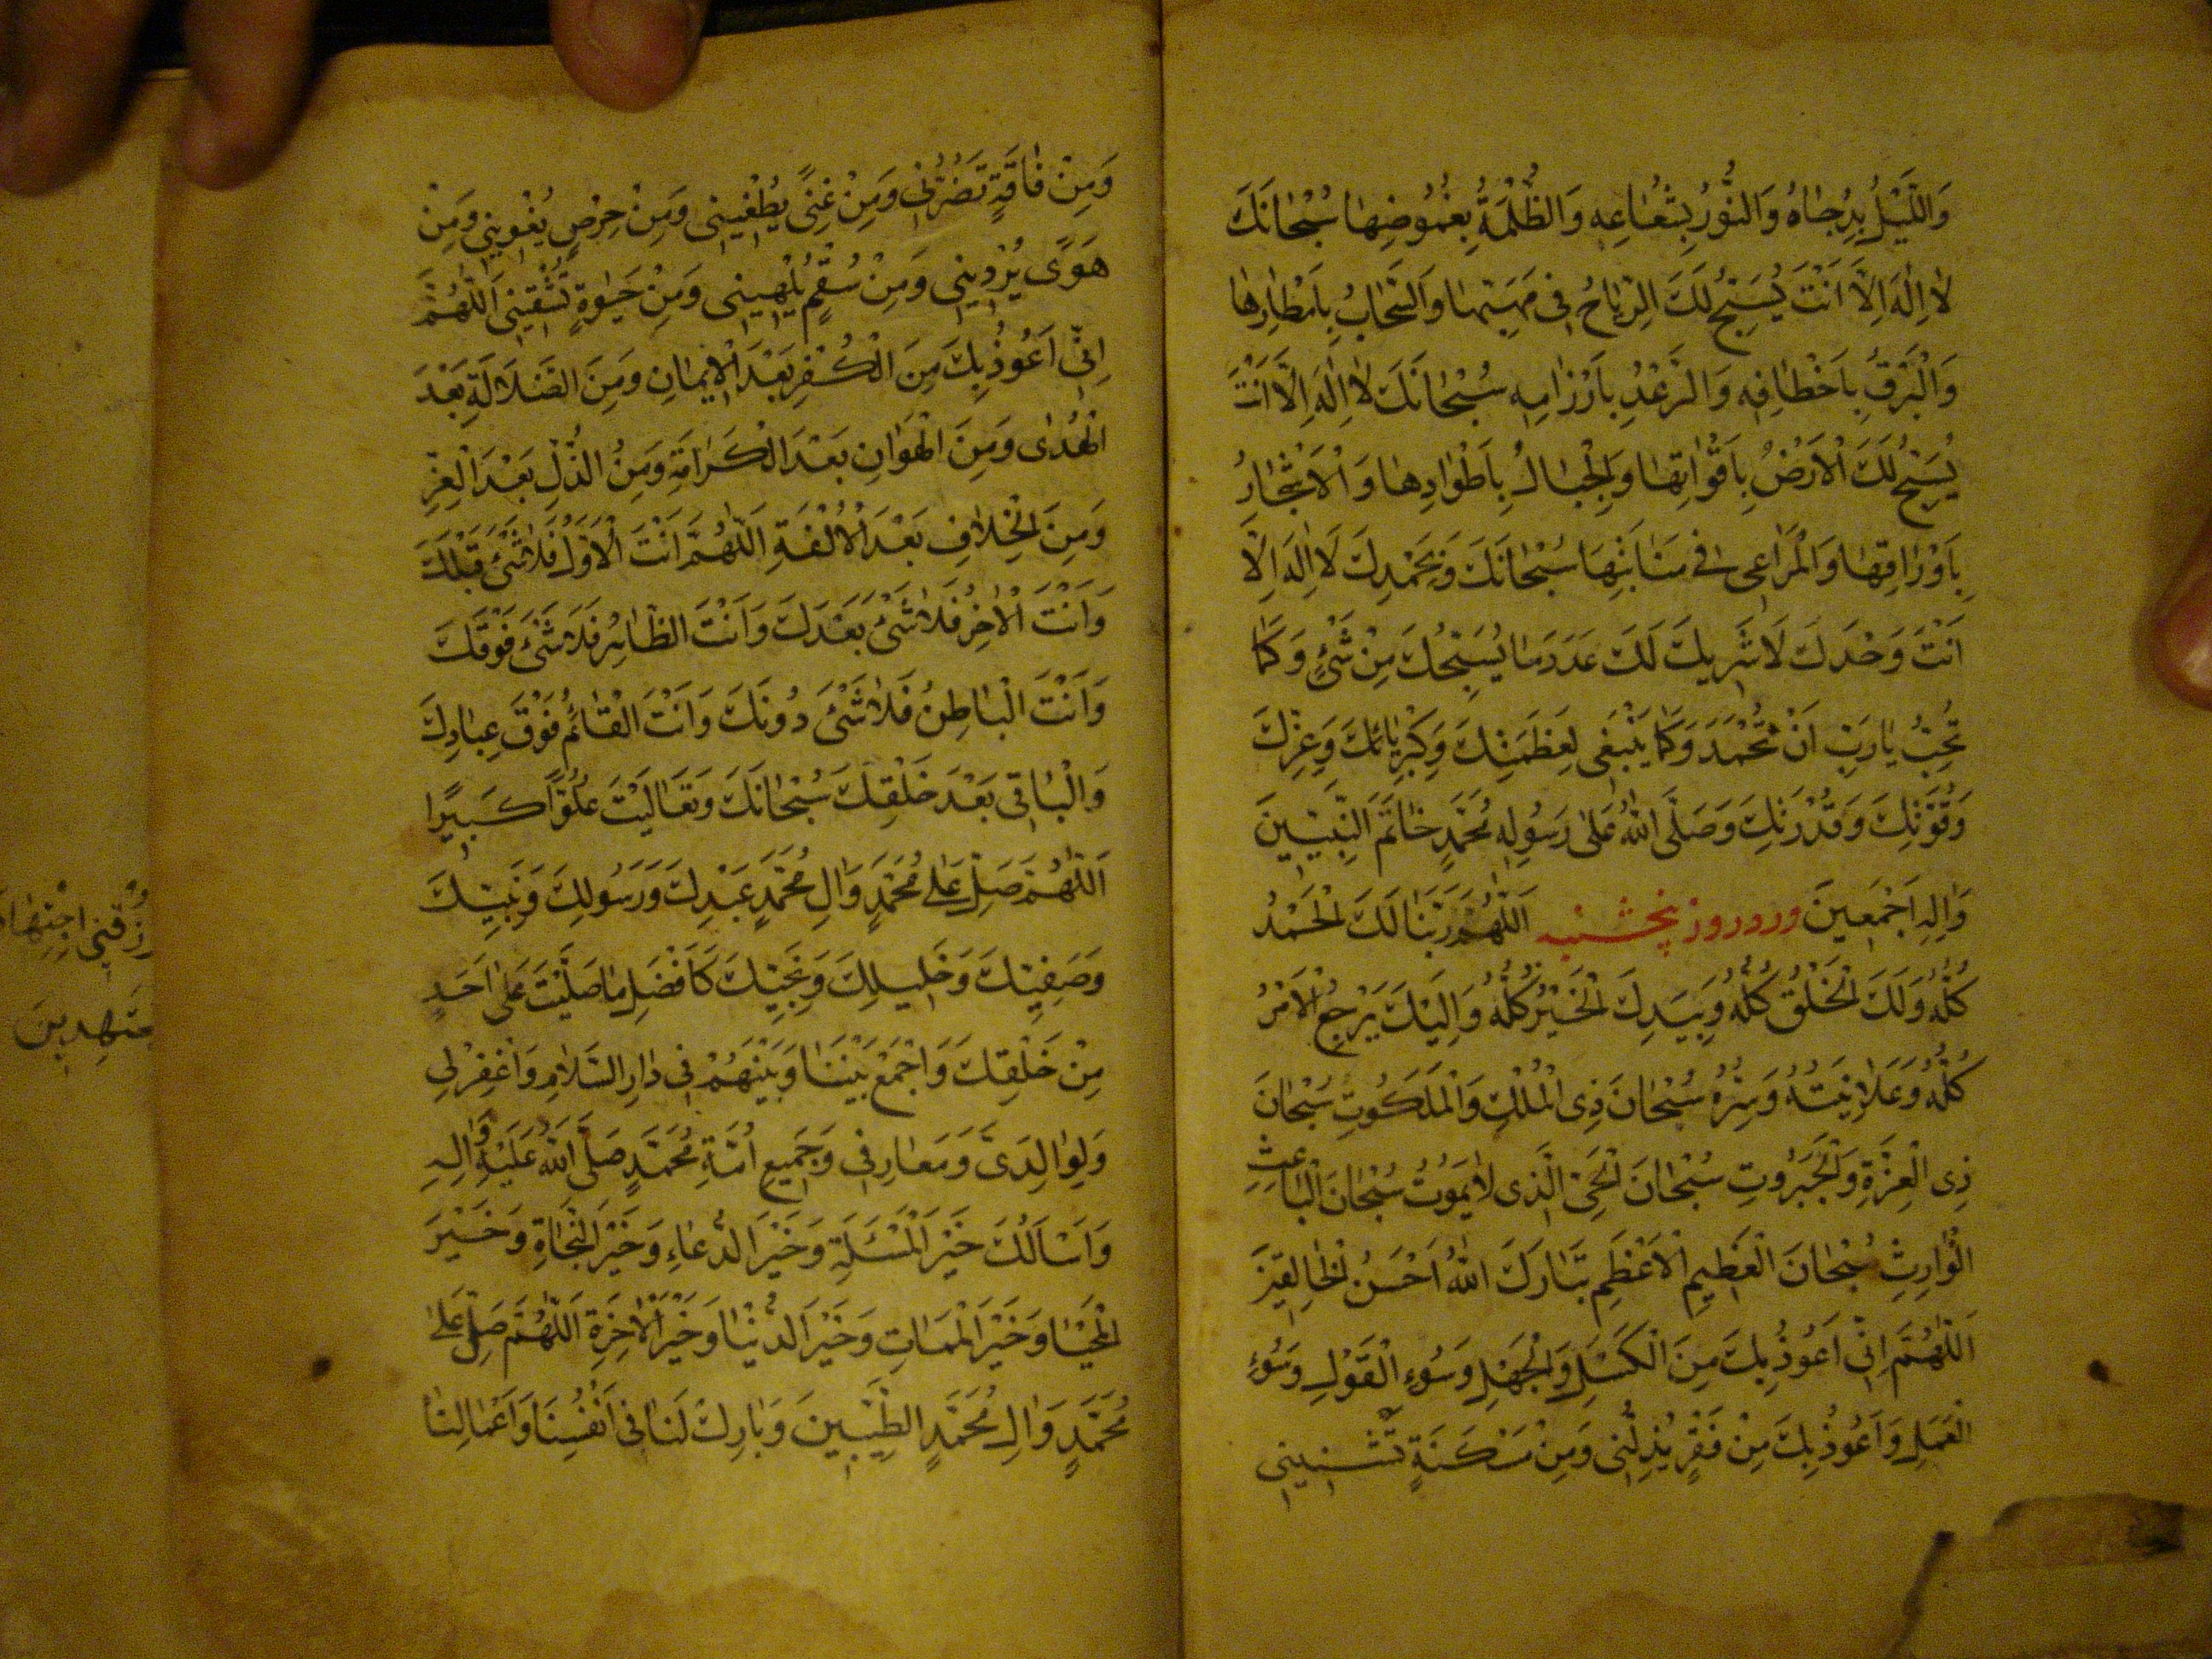 وَاللَّيْلُ بِدُجَاهُ وَالنُّورُ بِشُعَاعِهِ وَالظُّلْمَةُ بِغُمُوضِهَا سُبْحَانَكَ
لَا اِلٰهَ اِلَّا اَنْتَ يُسَبِّحُ لَكَ الرِّيَاحُ فِى مَهَبِّهَا وَالسَّحَابُ بِاَمْطَارِهَا
وَالْبَرْقُ بِاَخْطَافِهِ وَالرَّعْدُ بِاَرْزَامِهِ سُبْحَانَكَ لَا اِلٰهَ اِلَّا اَنْتَ
يُسَبِّحُ لَكَ الْاَرْضُ بِاَقْوَاتِهَا وَالْجِبَالُ بِاَطْوَادِهَا وَالْاَشْجَارُ
بِاَوْرَاقِهَا وَالْمَرَاعِى فِى مَنَابِتِهَا سُبْحَانَكَ وَبِحَمْدِكَ لَا اِلٰهَ اِلَّا
اَنْتَ وَحْدَكَ لَا شَرِيكَ لَكَ عَدَدَ مَا يُسَبِّحُكَ مِنْ شَىْءٍ وَكَمَا
تُحِبُّ يَا رَبِّ اَنْ تُحْمَدَ وَكَمَا يَنْبَغِى لِعَظَمَتِكَ وَكِبْرِيَائِكَ وَعِزِّكَ
وَقُوَّتِكَ وَقُدْرَتِكَ وَصَلَّى اللّٰهُ عَلَى رَسُولِهِ مُحَمَّدٍ خَاتَمِ النَّبِيِّينَ
وَاٰلِهِ اَجْمَعِينَ ورد روز پنجشنبه اَللّٰهُمَّ رَبَّنَا لَكَ الْحَمْدُ
كُلُّهُ وَلَكَ الْخَلْقُ كُلُّهُ وَبِيَدِكَ الْخَيْرُ كُلُّهُ وَاِلَيْكَ يَرْجِعُ الْاَمْرُ
كُلُّهُ وَعَلَانِيَتُهُ وَسِرُّهُ سُبْحَانَ ذِى الْمُلْكِ وَالْمَلَكُوتِ سُبْحَانَ
ذِى الْعِزَّةِ وَالْجَبَرُوتِ سُبْحَانَ الْحَىِّ الَّذِى لَا يَمُوتُ سُبْحَانَ الْبَاعِثِ
الْوَارِثِ سُبْحَانَ الْعَظِيمِ الْاَعْظَمِ تَبَارَكَ اللّٰهُ اَحْسَنُ الْخَالِقِينَ
اَللّٰهُمَّ اِنِّى اَعُوذُ بِكَ مِنَ الْكَسَلِ وَالْجَهْلِ وَسُوءِ الْقَوْلِ وَسُوءِ
الْعَمَلِ وَاَعُوذُ بِكَ مِنْ فَقْرٍ يُذِلُّنِى وَمِنْ مَسْكَنَةٍ
وَمِنْ فَاقَةٍ تَضُرُّنِى وَمِنْ غِنًى يُطْغِينِى وَمِنْ حِرْصٍ يُغْوِينِى وَمِنْ
هَوًى يُرْدِينِى وَمِنْ سُقْمٍ يُلْهِينِى وَمِنْ حَيٰوةٍ تُشْقِينِى اَللّٰهُمَّ
اِنِّى اَعُوذُ بِكَ مِنَ الْكُفْرِ بَعْدَ الْاِيمَانِ وَمِنَ الضَّلَالَةِ بَعْدَ
الْهُدٰى وَمِنَ الْهَوَانِ بَعْدَ الْكَرَامَةِ وَمِنَ الذُّلِّ بَعْدَ الْعِزِّ
وَمِنَ الْخِلَافِ بَعْدَ الْاُلْفَةِ اَللّٰهُمَّ اَنْتَ الْاَوَّلُ فَلَا شَىْءَ قَبْلَكَ
وَاَنْتَ الْاٰخِرُ فَلَا شَىْءَ بَعْدَكَ وَاَنْتَ الظَّاهِرُ فَلَا شَىْءَ فَوْقَكَ
وَاَنْتَ الْبَاطِنُ فَلَا شَىْءَ دُونَكَ وَاَنْتَ الْقَائِمُ فَوْقَ عِبَادِكَ
وَالْبَاقِى بَعْدَ خَلْقِكَ سُبْحَانَكَ وَتَعَالَيْتَ عُلُوًّا كَبِيرًا
اَللّٰهُمَّ صَلِّ عَلٰى مُحَمَّدٍ وَاٰلِ مُحَمَّدٍ عَبْدِكَ وَرَسُولِكَ وَنَبِيِّكَ
وَصَفِيِّكَ وَخَلِيلِكَ وَنَجِيِّكَ كَاَفْضَلِ مَا صَلَّيْتَ عَلٰى اَحَدٍ
مِنْ خَلْقِكَ وَاجْمَعْ بَيْنَنَا وَبَيْنَهُمْ فِى دَارِ السَّلَامِ وَاغْفِرْلِى
وَلِوَالِدَىَّ وَمَعَارِفِى وَجَمِيعِ اُمَّةِ مُحَمَّدٍ صَلَّى اللّٰهُ عَلَيْهِ وَاٰلِهِ
وَاَسْاَلُكَ خَيْرَ الْمَسْئَلَةِ وَخَيْرَ الدُّعَاءِ وَخَيْرَ النَّجَاةِ وَخَيْرَ
الْمَحْيَا وَخَيْرَ الْمَمَاتِ وَخَيْرَ الدُّنْيَا وَخَيْرَ الْاٰخِرَةِ اَللّٰهُمَّ صَلِّ عَلٰى
مُحَمَّدٍ وَاٰلِ مُحَمَّدٍ الطَّيِّبِينَ وَبَارِكْ لَنَا فِى اَنْفُسِنَا وَاَعْمَالِنَا